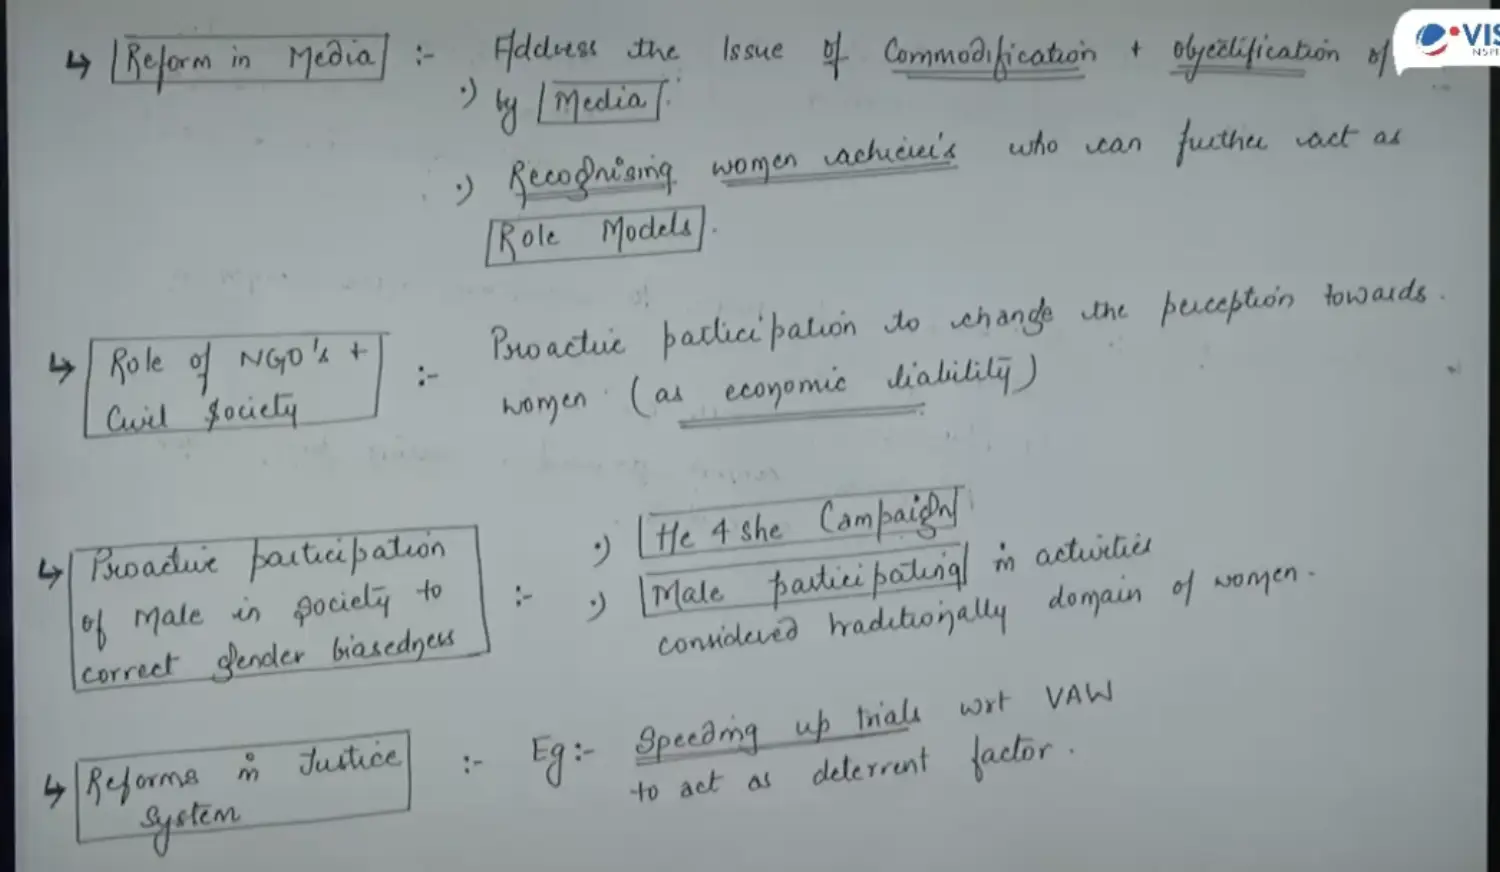 ↳ Reform in Media :- Address the Issue of Commodification + objectification of
·) by Media.
·) Recognising women achievers who can further act as
Role Models.
↳ Role of NGO's + Civil Society :- Proactive participation to change the perception towards
women (as economic liability)
↳ Proactive participation of Male in society to correct gender biasedness :- ·) He 4 she Campaign
·) Male participating in activities
considered traditionally domain of women.
↳ Reforms in Justice System :- Eg:- Speeding up trials wrt VAW
to act as deterrent factor.
VIS